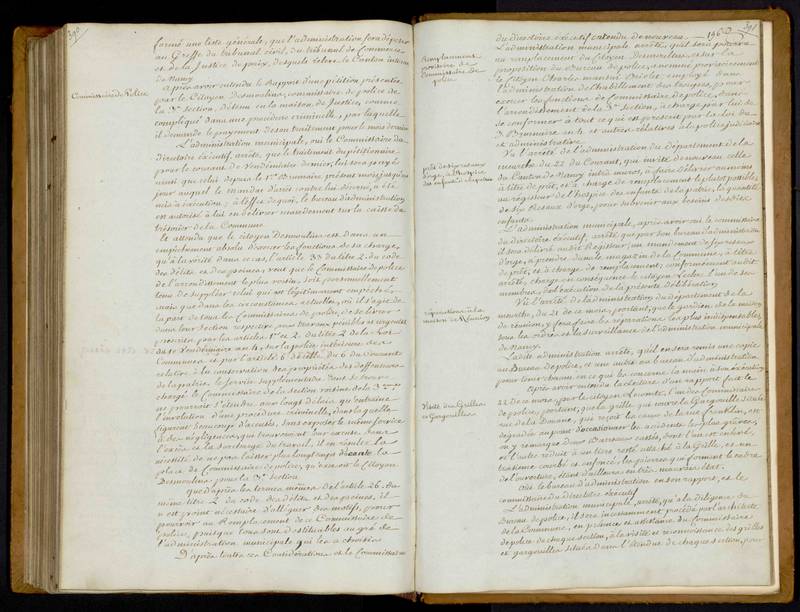 390
formé une liste générale, que l'administration fera déposer
au Greffe du tribunal civil, du tribunal de Commerce
et de la Justice de paix, desquels relève le Canton intra
de Nancy.
Commissaire de Police
Après avoir entendu le Rapport d'une pétition présentée
par le Citoyen Desmoulins, commissaire de police de
la 3e section, détenu en la maison de Justice, comme
compliqué dans une procédure criminelle, par laquelle
il demande le payement de son traitement pour le mois dernier
L'administration municipale, ouï le Commissaire du
directoire exécutif, arrête, que le traitement du pétitionnaire
pour le courant de Vendémiaire dernier, lui sera payé
ainsi que celui depuis le 1er Brumaire présent mois jusqu'au
jour auquel le mandat d'arrêt contre lui décerné, a été
mis à exécution; à l'effet de quoi, le bureau d'administration
est autorisé à lui en délivrer mandement sur la caisse du
trésorier de la Commune
Et attendu que le citoyen Desmoulins est dans un
empêchement absolu d'exercer les fonctions de sa charge,
qu'à la vérité dans ce cas, l'article 33 du titre 2. du code
des délits et des peines, veut que le Commissaire de police
de l'arrondissement le plus voisin, soit personnellement
tenu de suppléer celui qui est légitimement empêché,
mais que dans les circonstances actuelles, où il s'agit de
la part de tous les Commissaires de police, de se livrer
dans leur section respective, aux travaux pénibles et
prescrits par les articles 1er et 2. du titre 2. de la Loi
du 10 Vendémiaire an 4, sur la police intérieure des
Communes et par l'article 6 du 6 du Courant
relatif à la conservation des propriétés des défenseurs
de la patrie, le service supplémentaire dont se trouve
chargé le Commissaire de la section voisine de la 3eme
ne pourroit s'étendre aux longs délais qu'entraine
l'involution d'une procédure criminelle, dans laquelle
figurent beaucoup d'accusés, sans exposer le même service
à des négligences, qui trouveroient leur excuse dans
l'excès et la surcharge du travail, il en résulte la
nécessité de ne pas laisser plus longtemps vacante la
place de Commissaire de police, qu'exerçoit le Citoyen
Desmoulins pour la 3e section
que d'après les termes mêmes de l'article 26. du
même titre 2 du code des délits et des peines, il
n'est point nécessaire d'alléguer des motifs, pour
pourvoir au Remplacement des Commissaires de
police, puisque tous sont destituables au gré de
l'administration municipale qui les a choisis
D'après toutes ces Considérations et le Commissaire
391
du directoire exécutif entendu de nouveau
Remplacement
provisoire du
Commissaire de
police
L'administration municipale arrête, qu'il sera pourvu
au remplacement du Citoyen Desmoulins, et sur la
proposition du Bureau de police, nomme provisoirement
le Citoyen Charles mansui Briolet, employé dans
l'administration de l'habillement des troupes, pour
exercer les fonctions de Commissaire de police, dans
l'arrondissement de la 3e section, à charge par lui de
se conformer à tout ce qui est prescrit par la Loi du
3 Brumaire an 4 et autres relatives à la police judiciaire
et administrative
Prêt de six resaux
d'orge, à l'hospice
des enfants
Vu l'arrêté de l'administration du département de la
meurthe du 22 du Courant, qui invite de nouveau celle
du Canton de Nancy intrà muros, à faire délivrer au moins
à titre de prêt, et à charge de remplacement le plutôt possible,
au régisseur de l'hospice des enfants de la patrie, la quantité
de six Resaux d'orge, pour subvenir aux besoins desdits
enfants
L'administration municipale, après avoir ouï le commissaire
du directoire exécutif, arrête, que par son bureau d'administration
il sera délivré audit Régisseur, un mandement de six resaux
d'orge, à prendre dans le magasin de la Commune, à titre
de prêt, et à charge de remplacement, conformément audit
arrêté, charge en conséquence le citoyen Leclerc l'un de ses
membres, de l'exécution de la présente délibération
réparations à la
maison de Réunion
Vu l'arrêté de l'administration du département de la
meurthe, du 21 de ce mois, portant, que le gardien de la maison
de réunion, y fera faire les réparations les plus indispensables,
sous les ordres et la surveillance de l'administration municipale
de Nancy.
Ladite administration arrête, qu'il en sera remis une copie
au Bureau de police, et une autre au bureau d'administration
pour tenir chacun en ce qui les concerne, la main à son exécution
Visite des Grilles
et Gargouilles
Après avoir entendu la lecture d'un rapport fait le
22 de ce mois, par le citoyen l'un des Commissaires
de police, portant, que la grille qui couvre la Gargouille sise rue
rue de la Douane, qui est le coin de la rue franklin, est
dégradée au point d'occasionner les accidents les plus graves,
on y remarque deux Barreaux cassés, dont l'un est enlevé,
et l'autre réduit à un tiers resté attaché à la Grille, et un
troisième courbé et enfoncé, les pierres qui forment le cadre
de l'ouverture, étant d'ailleurs en très mauvais état.
Ouï le bureau d'administration en son rapport, et le
commissaire du directoire exécutif
L'administration municipale, arrête, qu'à la diligence du
Bureau de police, il sera incessamment procédé par l'architecte
de la Commune, en présence et assistance du Commissaire
de police de chaque section, à la visite et reconnoissance des grilles
et gargouilles situées dans l'étendue de chaque section, pour